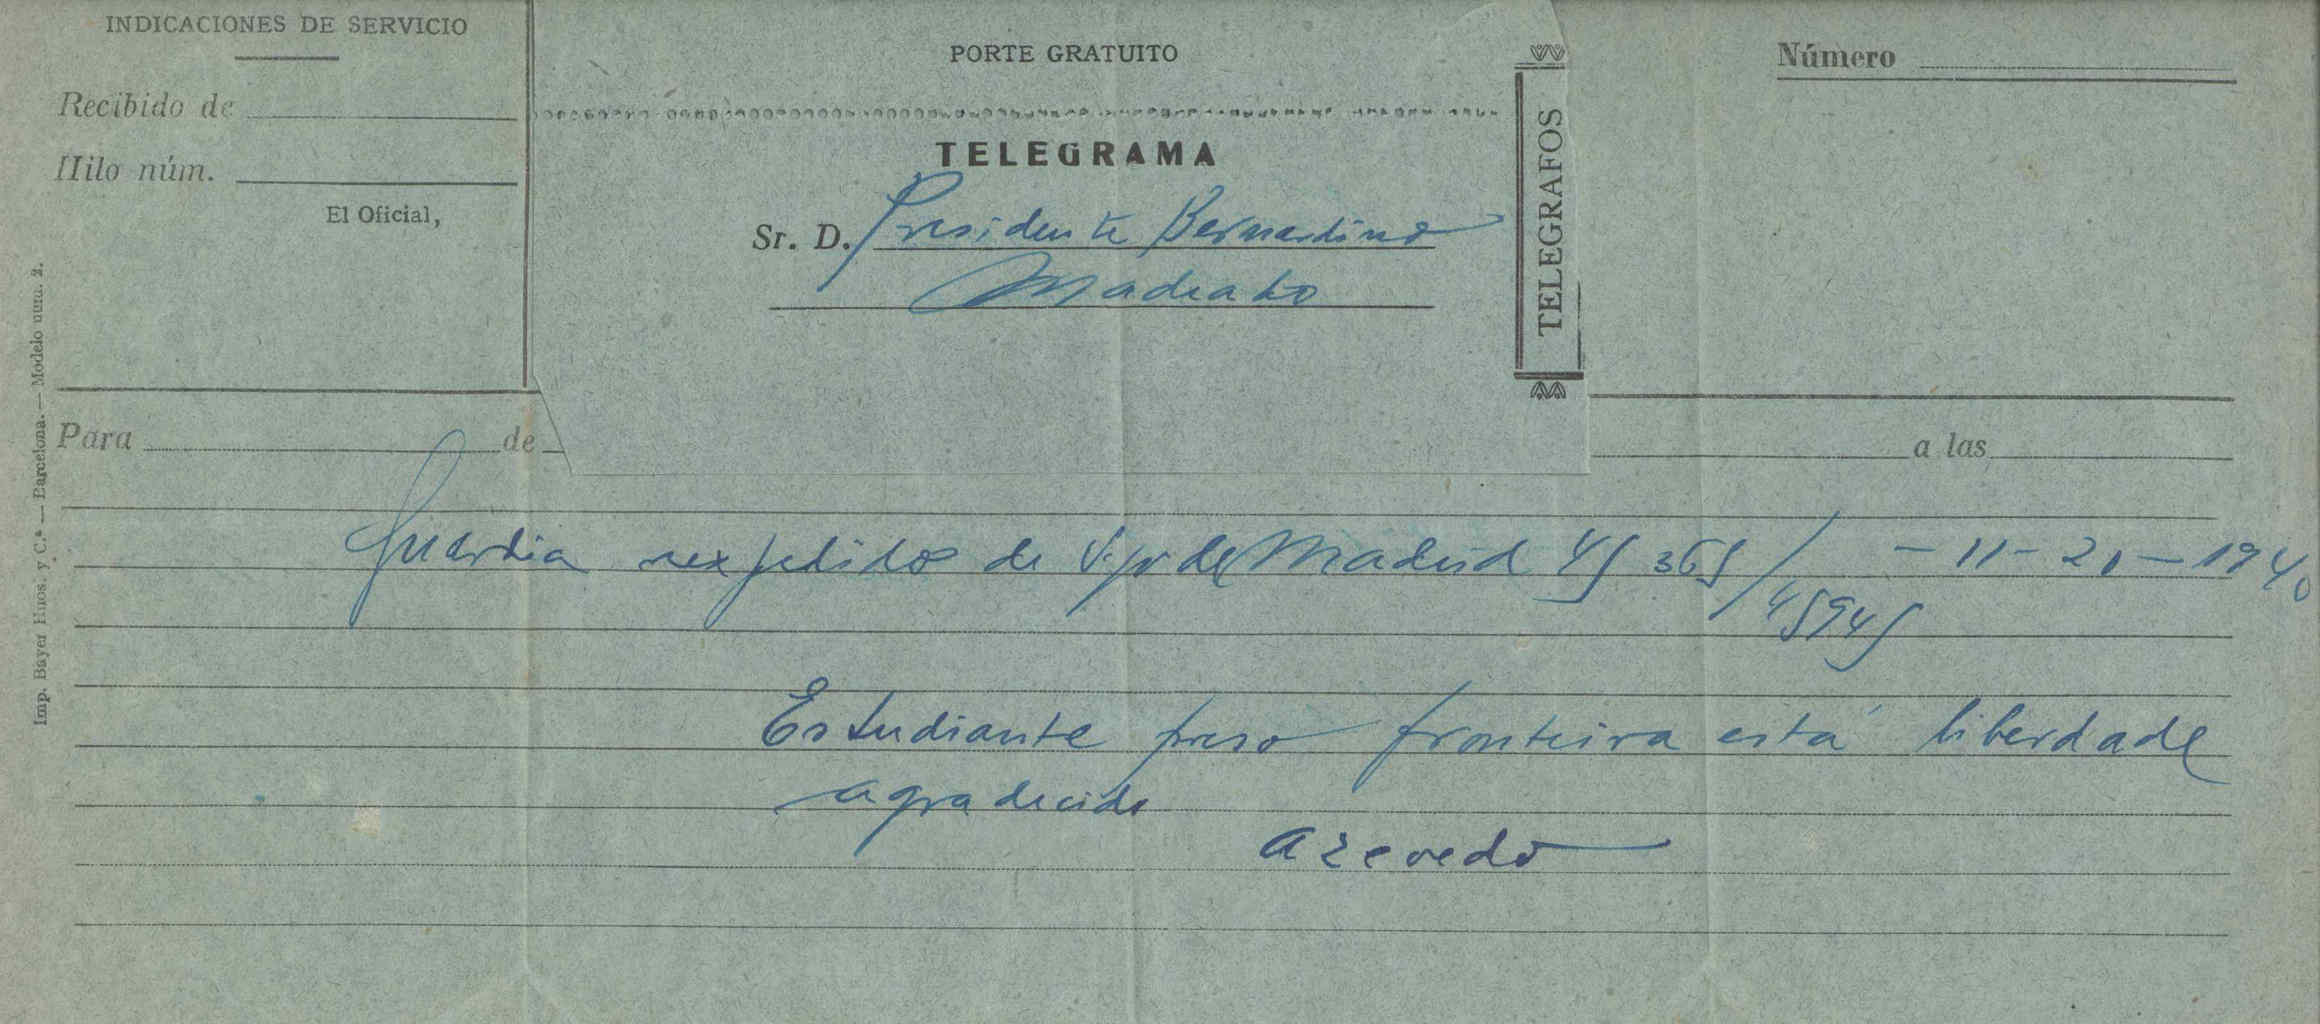 INDICACIONES DE SERVICIO
Recibido de
Hilo núm.
El Oficial,
PORTE GRATUITO
TELEGRAMA
Sr. D. Presidente Bernardino
Machado
TELEGRAFOS
Número
Para de a las
Guardia de Madrid 45 365/ - 11 - 21 - 1940
45945
Estudiante preso fronteira está liberdade
agradecido
Azevedo
Imp. Bayer Hnos. y C.ª — Barcelona. — Modelo núm. 2.